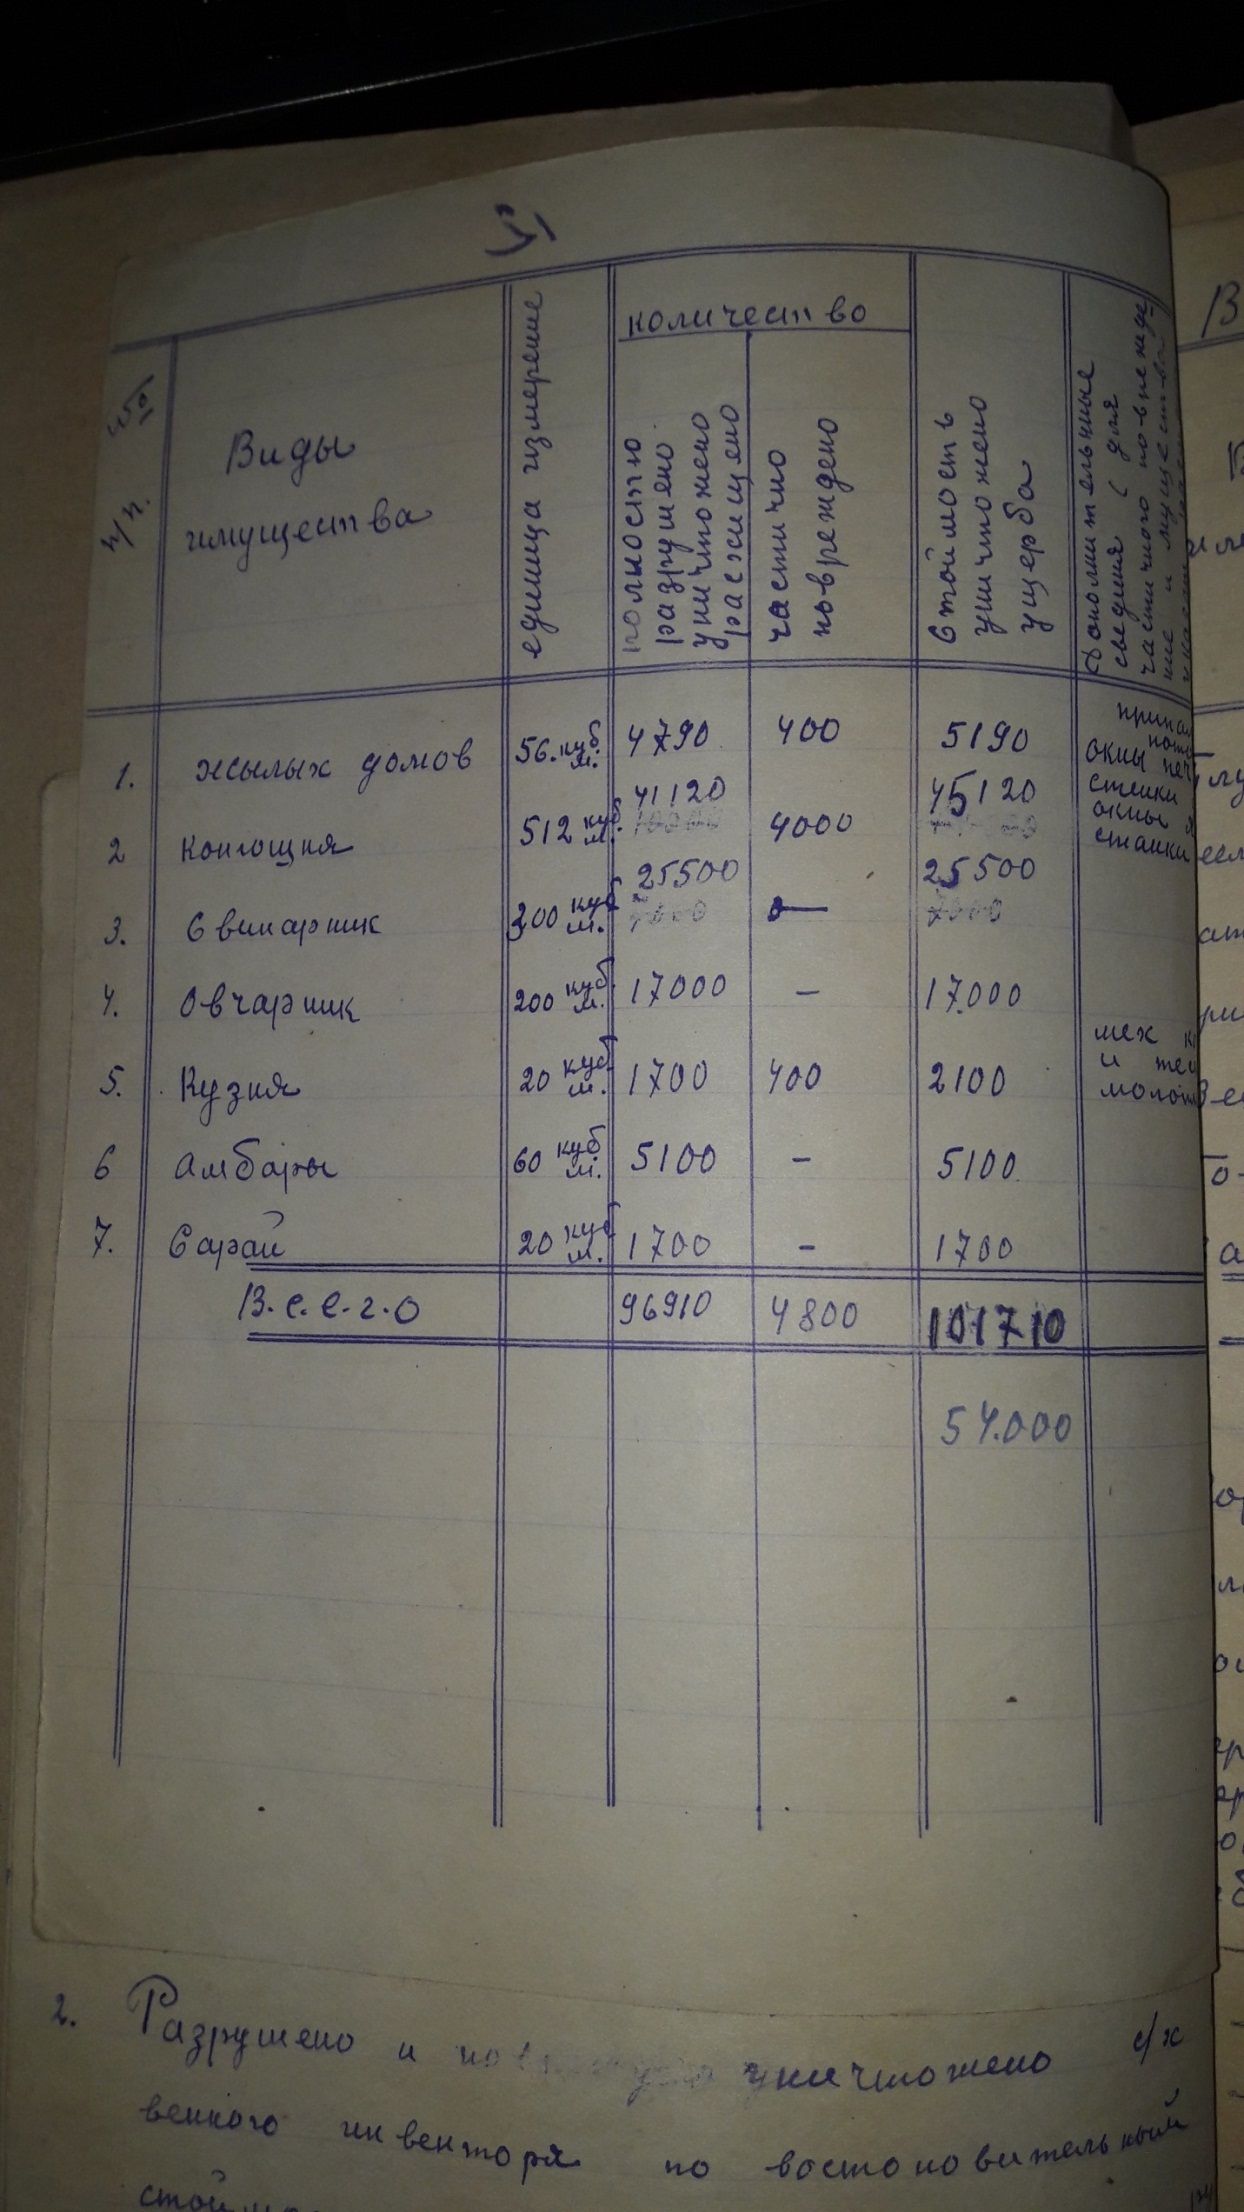 №
п/п.
Виды
имущества
единица измерение
количество
полностью
разрушено
уничтожено
расхищено
частично
повреждено
стоймость
уничтожено
ущерба
Дополнительные
сведия (для
частичного
ние имущества
1. жылых домов 56. куб. м. 4790 400 5190
окны печ
41120 45120 стенки
2 Конюшня 512 куб. м. 10000 4000 окны
станки
25500 25500
3. Свинарник 300 куб м. 7000 — 7000
4. Овчарник 200 куб. м. 17000 – 17.000
мех
5. Кузня 20 куб м. 1700 400 2100 и
6 Амбары 60 куб. м. 5100 – 5100
7. Сарай 20 куб м. 1700 – 1700
В.с.е.г.о 96910 4800 101710
54.000
2. Разрушено и уничтожено с/х
венного инвенторя по востоновительный